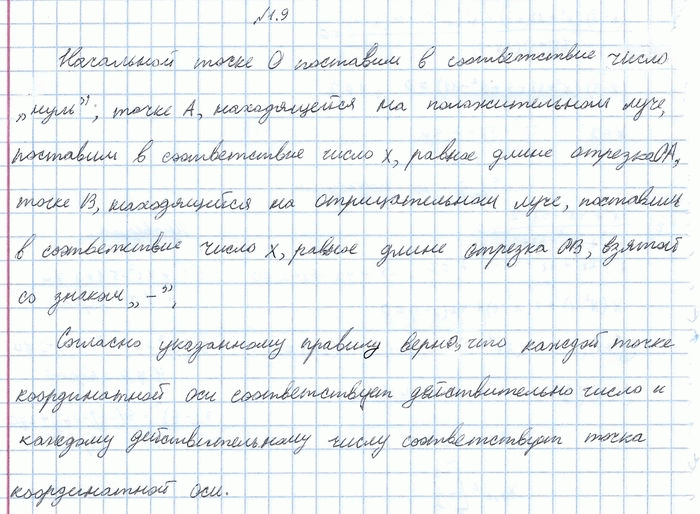 №1.9
Начальной точке О поставим в соответствие число
„нуль”; точке А, находящейся на положительном луче,
поставим в соответствие число х, равное длине отрезка ОА,
точке В, находящейся на отрицательном луче, поставим
в соответствие число х, равное длине отрезка ОВ, взятой
со знаком „–”,
Согласно указанному правилу верно, что каждой точке
координатной оси соответствует действительно число и
каждому действительному числу соответствует точка
координатной оси.